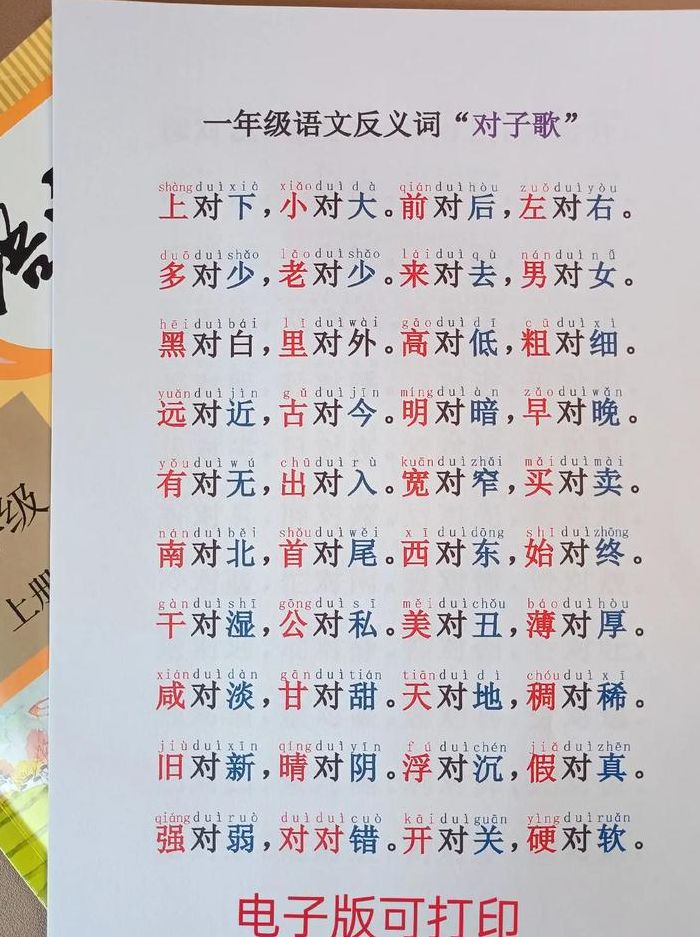 一年级语文反义词“对子歌”
shàng duì xià xiǎo duì dà qián duì hòu zuǒ duì yòu
上对下，小对大。前对后，左对右。
duō duì shǎo lǎo duì shǎo lái duì qù nán duì nǚ
多对少，老对少。来对去，男对女。
hēi duì bái lǐ duì wài gāo duì dī cū duì xì
黑对白，里对外。高对低，粗对细。
yuǎn duì jìn gǔ duì jīn míng duì àn zǎo duì wǎn
远对近，古对今。明对暗，早对晚。
yǒu duì wú chū duì rù kuān duì zhǎi mǎi duì mài
有对无，出对入。宽对窄，买对卖。
nán duì běi shǒu duì wěi xī duì dōng shǐ duì zhōng
南对北，首对尾。西对东，始对终。
gàn duì shī gōng duì sī měi duì chǒu báo duì hòu
干对湿，公对私。美对丑，薄对厚。
xián duì dàn gān duì tián tiān duì dì chóu duì xī
咸对淡，甘对甜。天对地，稠对稀。
jiù duì xīn qíng duì yīn fú duì chén jiǎ duì zhēn
旧对新，晴对阴。浮对沉，假对真。
qiáng duì ruò duì duì cuò kāi duì guān yìng duì ruǎn
强对弱，对对错。开对关，硬对软。
电子版可打印
级
上册